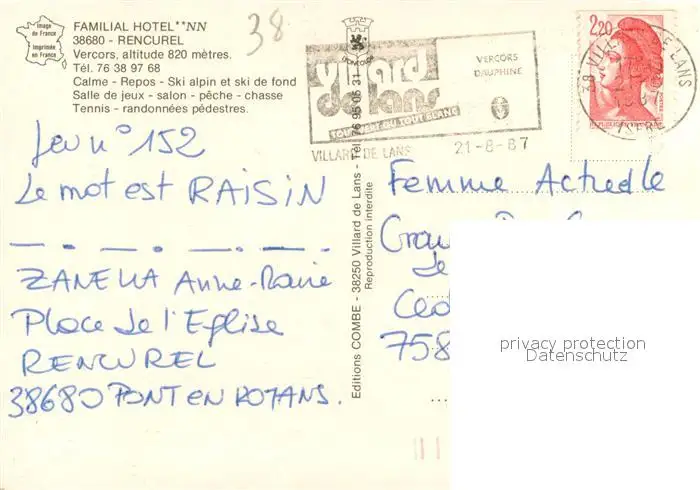 Image de France
Imprimée en France
FAMILIAL HOTEL**NN
38680 - RENCUREL
Vercors, altitude 820 mètres.
Tél. 76 38 97 68
Calme - Repos - Ski alpin et ski de fond
Salle de jeux - salon - pêche - chasse
Tennis - randonnées pédestres.
38
Jeu n° 152
Le mot est RAISIN
ZANELLA Anne-Marie
Place de l'Eglise
RENCUREL
38680 PONT EN ROYANS.
Editions COMBE - 38250 Villard de Lans - Tél. 76 95 05 31
Reproduction interdite
villard de lans
TOUT VERT OU TOUT BLANC
VERCORS
DAUPHINE
VILLARD DE LANS
21-8-87
2,20
38 VILLARD DE LANS
ISERE
Femme Actuelle
758
privacy protection
Datenschutz